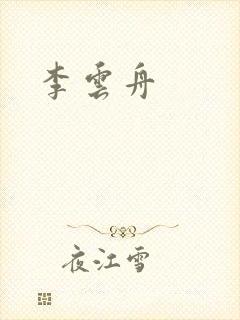 李雲舟
夜江雪